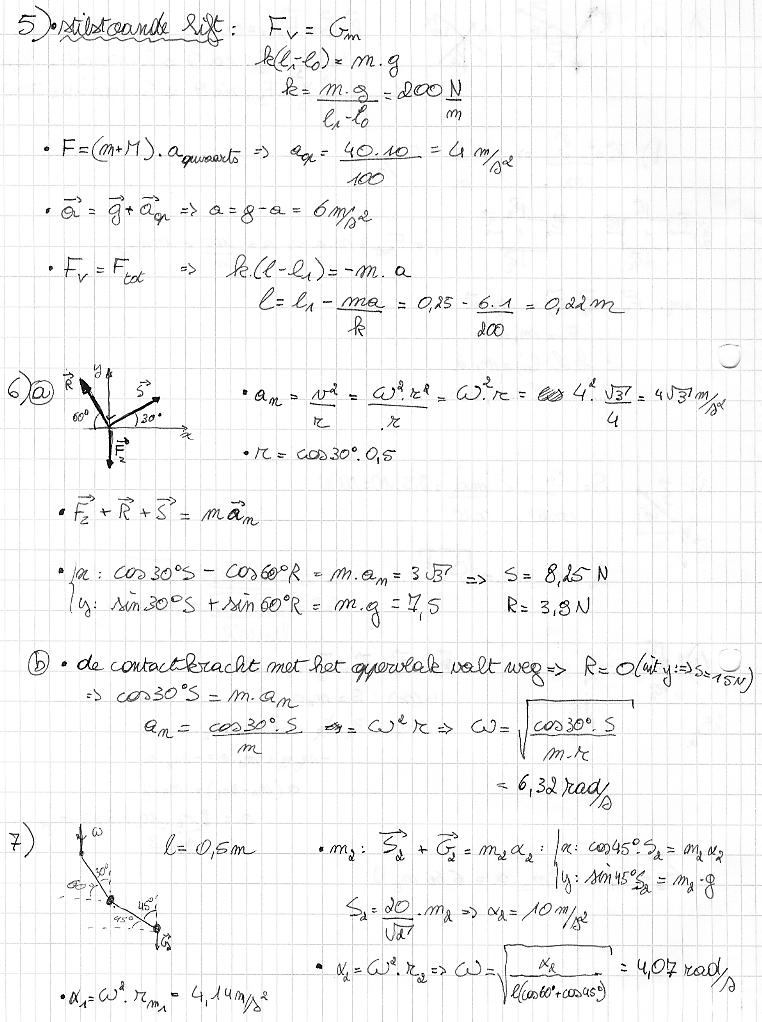 5) • stilstaande lift: F_v = G_m
k(l₁-l₀) = m.g
k = m.g / (l₁-l₀) = 200 N/m
• F = (m+M).a_opwaarts => a_op = 40.10 / 100 = 4 m/s²
• a⃗ = g⃗ + a⃗_op => a = g - a = 6 m/s²
• F_v = F_tot => k.(l-l₁) = -m.a
l = l₁ - ma/k = 0,25 - 6.1/200 = 0,22 m
6) a
y R⃗ S⃗ 60° 30° x F⃗_z
• a_n = v²/r = ω².r²/r = ω².r = 4².√3/4 = 4√3 m/s²
• r = cos30°.0,5
• F⃗_z + R⃗ + S⃗ = m a⃗_n
• { x: cos30°S - cos60°R = m.a_n = 3√3 => S = 8,25 N
y: sin30°S + sin60°R = m.g = 7,5 R = 3,9 N
b • de contactkracht met het oppervlak valt weg => R = 0 (uit y: => S = 15N)
=> cos30°S = m.a_n
a_n = cos30°.S / m = ω² r => ω = √(cos30°.S / m.r)
= 6,32 rad/s
7)
ω 30° 45° 45° G⃗₂
l = 0,5m
• m₂: S⃗₂ + G⃗₂ = m₂ α₂ : | x: cos45°S₂ = m₂ α₂
| y: sin45°S₂ = m₂.g
S₂ = 20/√2 . m₂ => α₂ = 10 m/s²
• α₂ = ω².r₂ => ω = √(α₂ / l(cos60°+cos45°)) = 4,07 rad/s
• α₁ = ω².r_m₁ = 4,14 m/s²